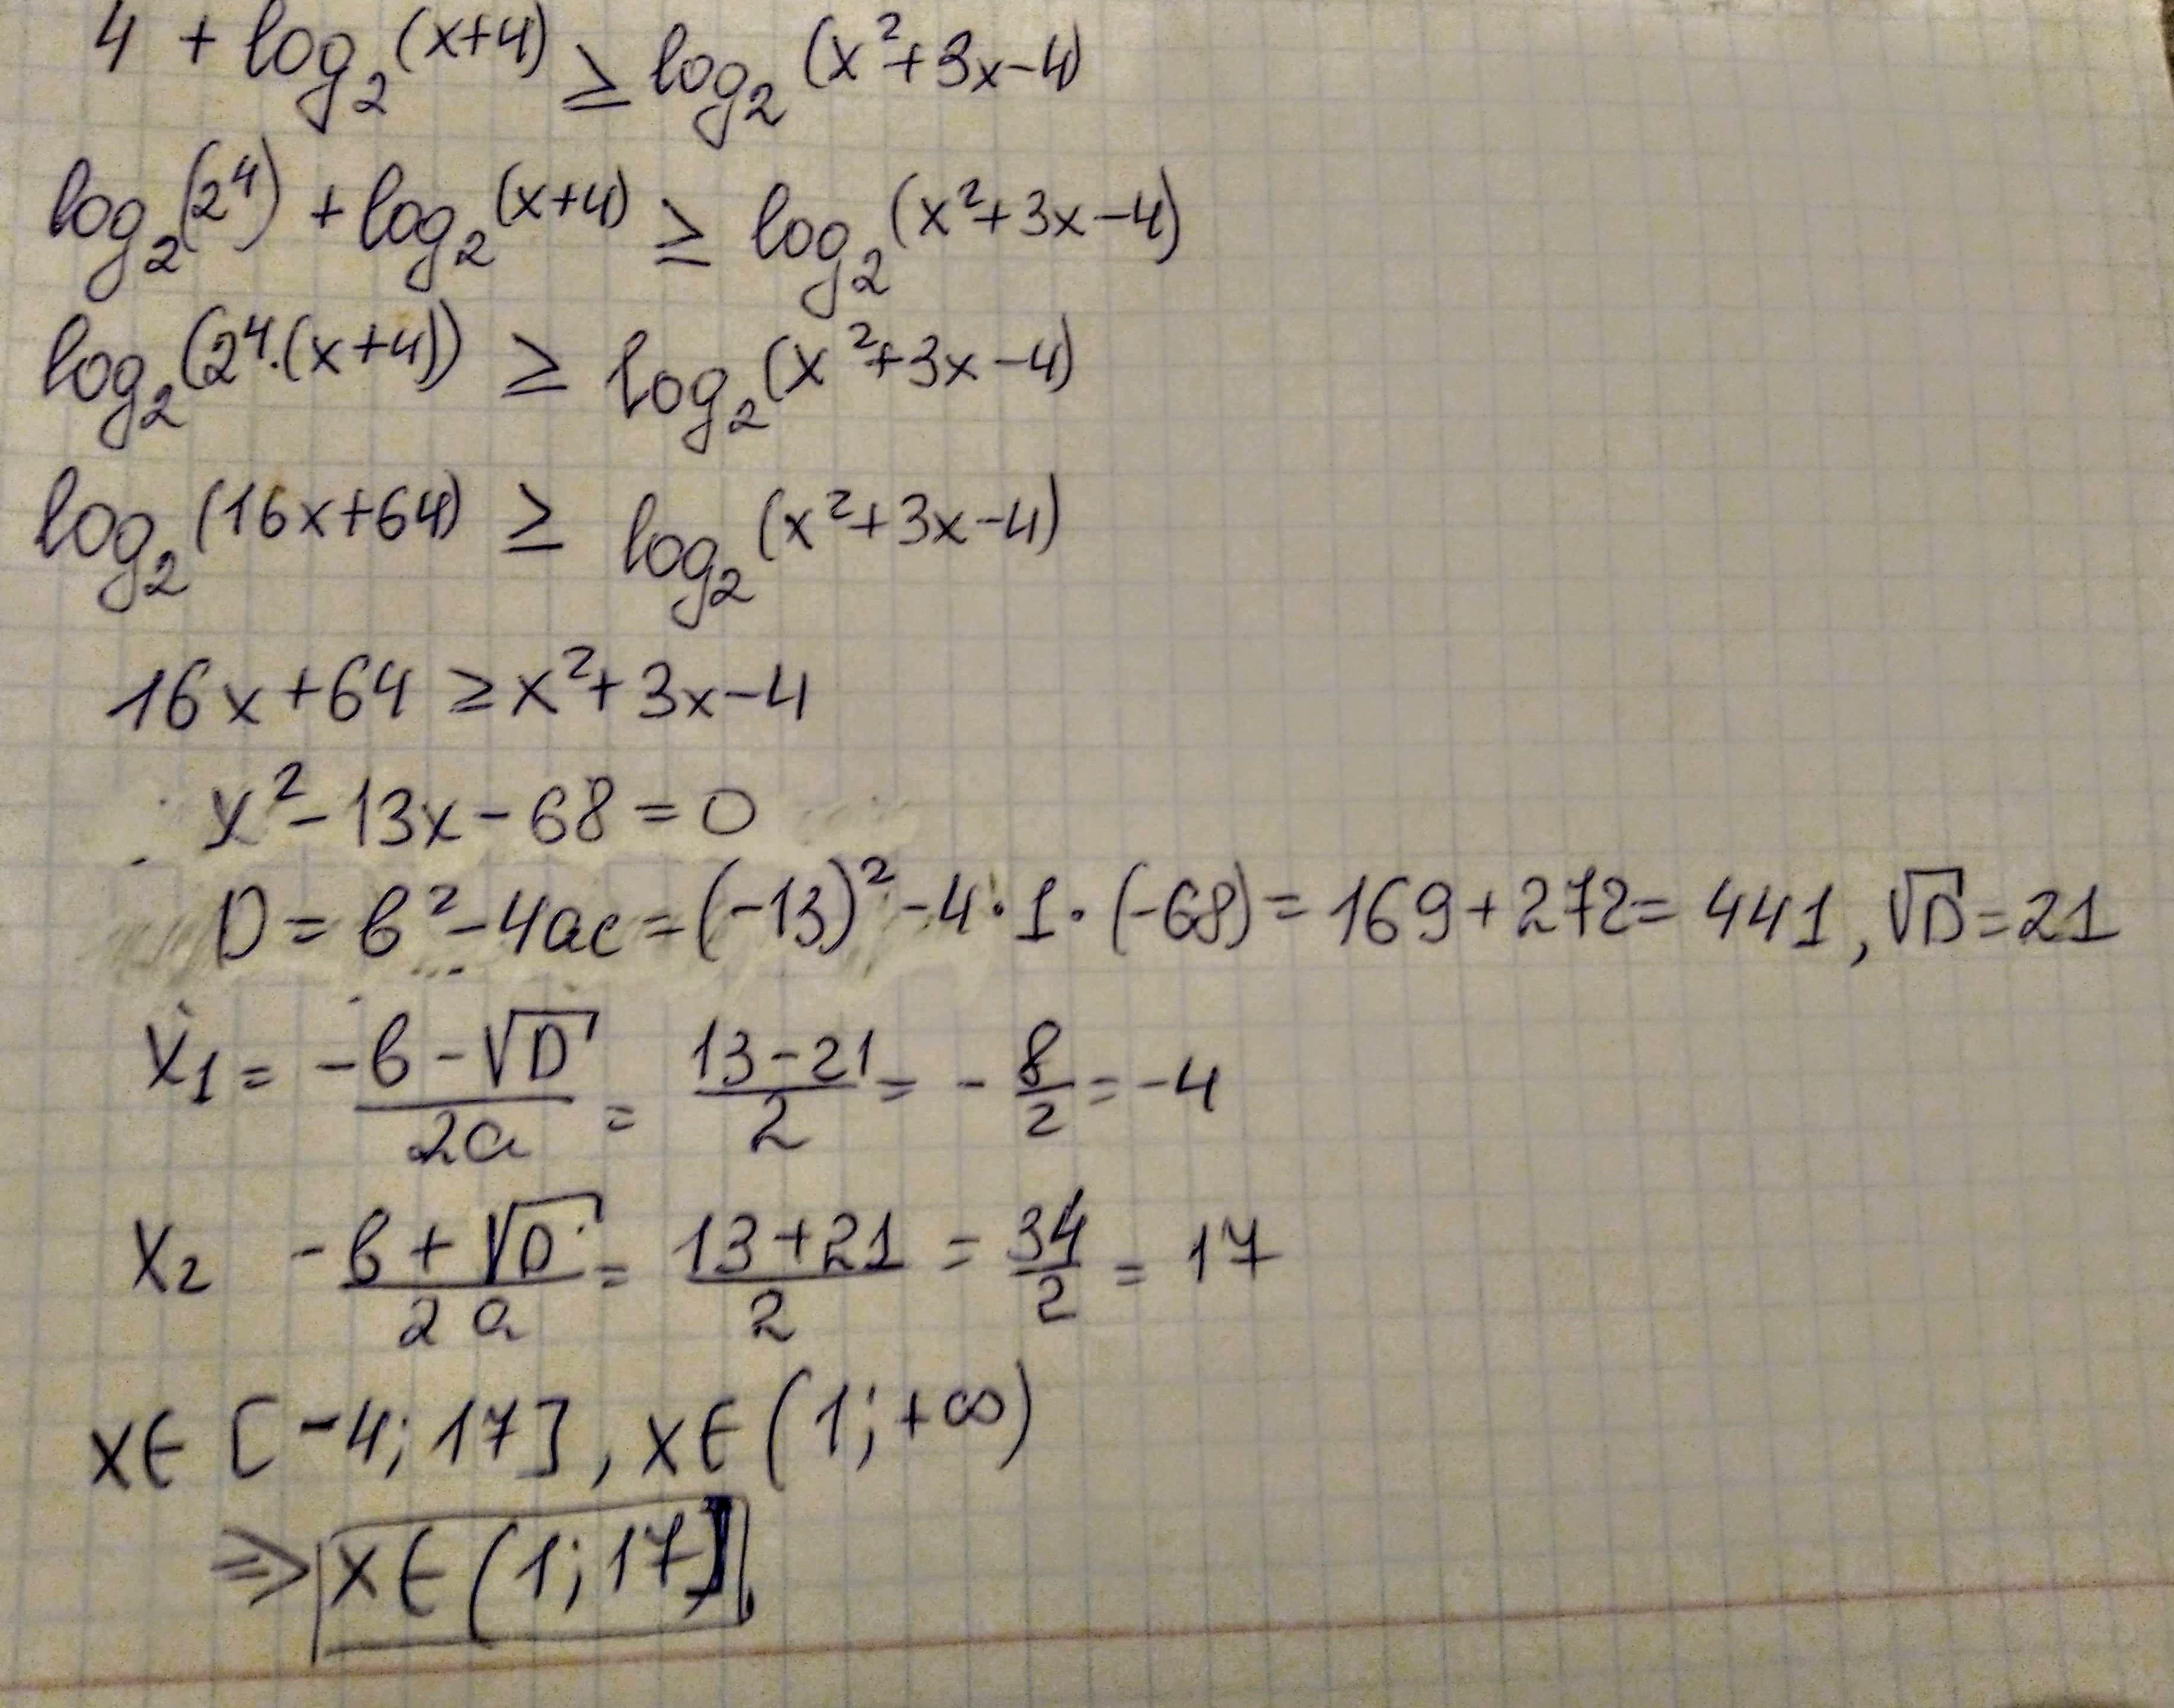 4 + log₂(x+4) ≥ log₂(x²+3x-4)
log₂(2⁴) + log₂(x+4) ≥ log₂(x²+3x-4)
log₂(2⁴·(x+4)) ≥ log₂(x²+3x-4)
log₂(16x+64) ≥ log₂(x²+3x-4)
16x+64 ≥ x²+3x-4
x²-13x-68=0
D = b²-4ac = (-13)²-4·1·(-68) = 169+272 = 441, √D = 21
x₁ = (-b-√D)/2a = (13-21)/2 = -8/2 = -4
x₂ (-b+√D)/2a = (13+21)/2 = 34/2 = 17
x∈[-4;17], x∈(1;+∞)
⇒ x∈(1;17]